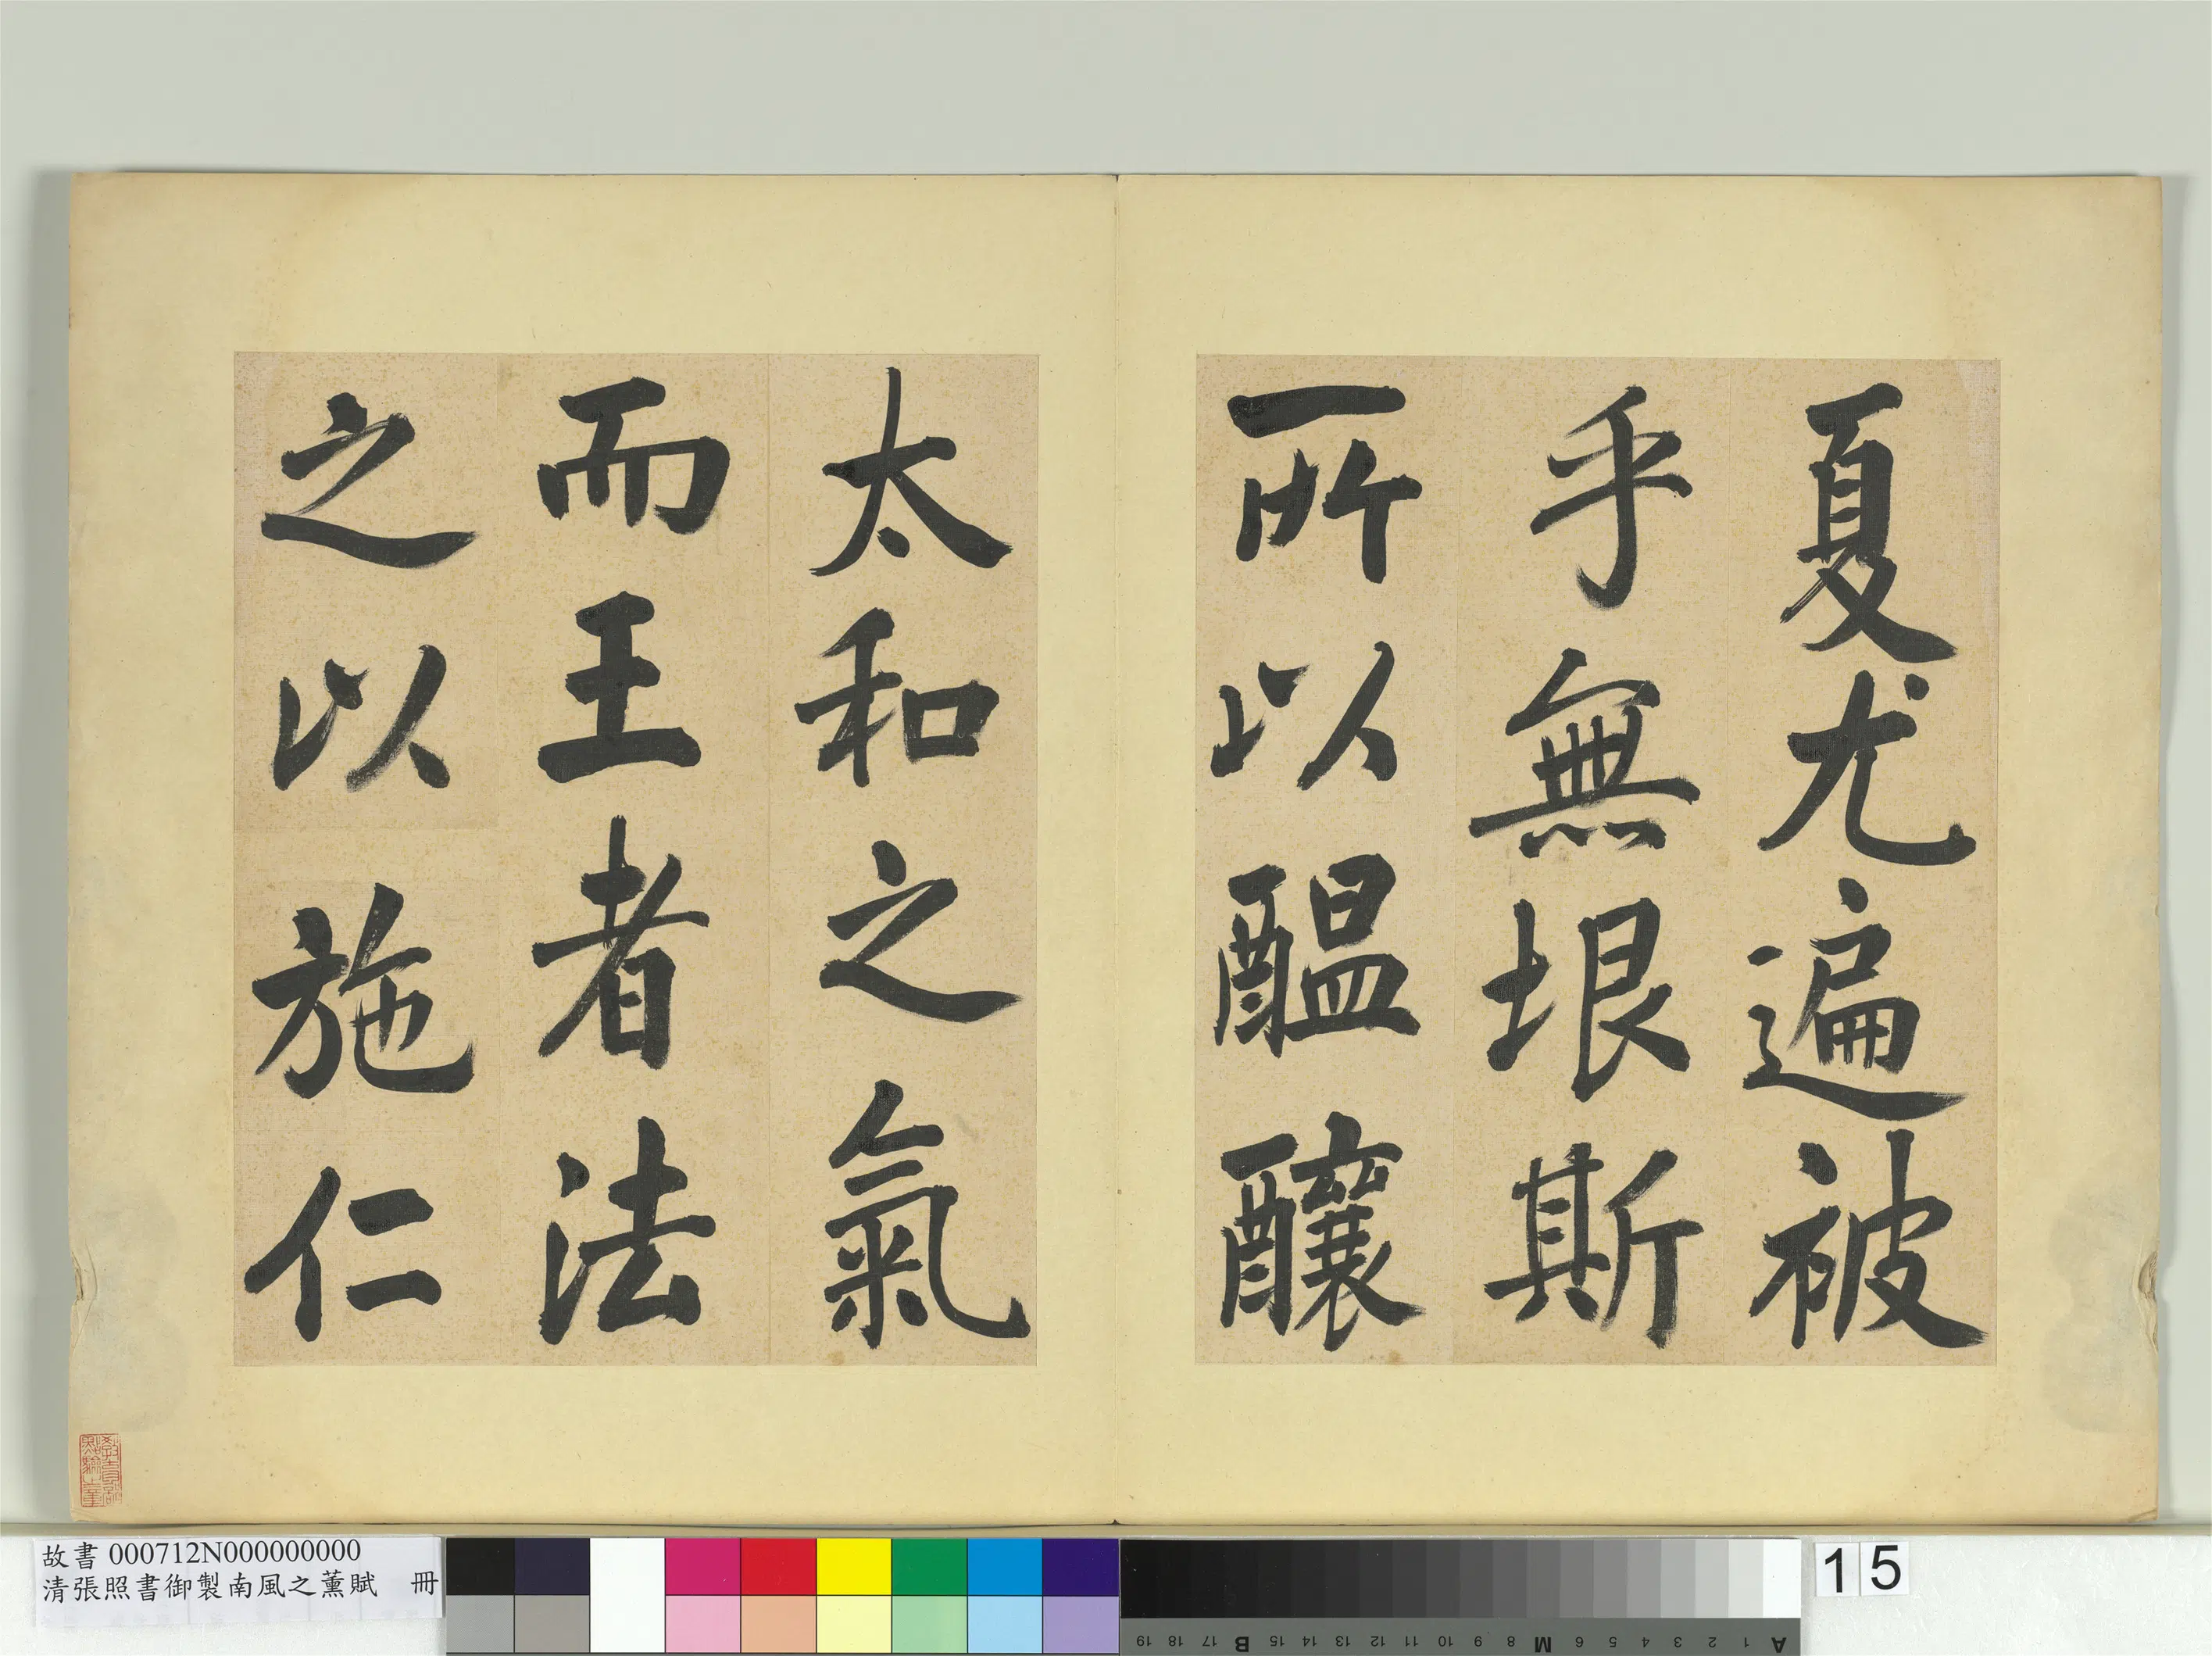 夏尤遍被
乎無垠斯
所以醖釀
太和之氣
而王者法
之以施仁
教育部
點驗之章
故書 000712N000000000
清張照書御製南風之薰賦 冊
15
A 1 2 3 4 5 6 M 8 9 10 11 12 13 14 15 B 17 18 19